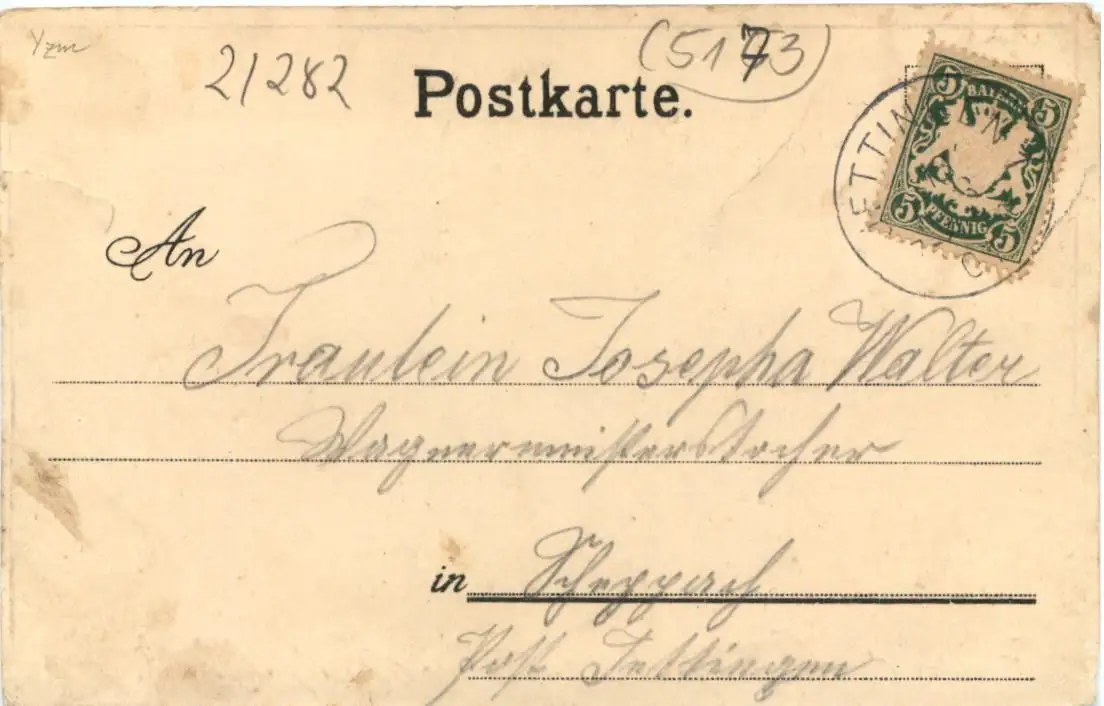 21282
(5173)
Postkarte.
5 BAYERN 5
5 PFENNIG 5
ETTINGEN
An
Fräulein Josepha Walter
Wagnermeisterstocher
in Scheppach
Post Jettingen